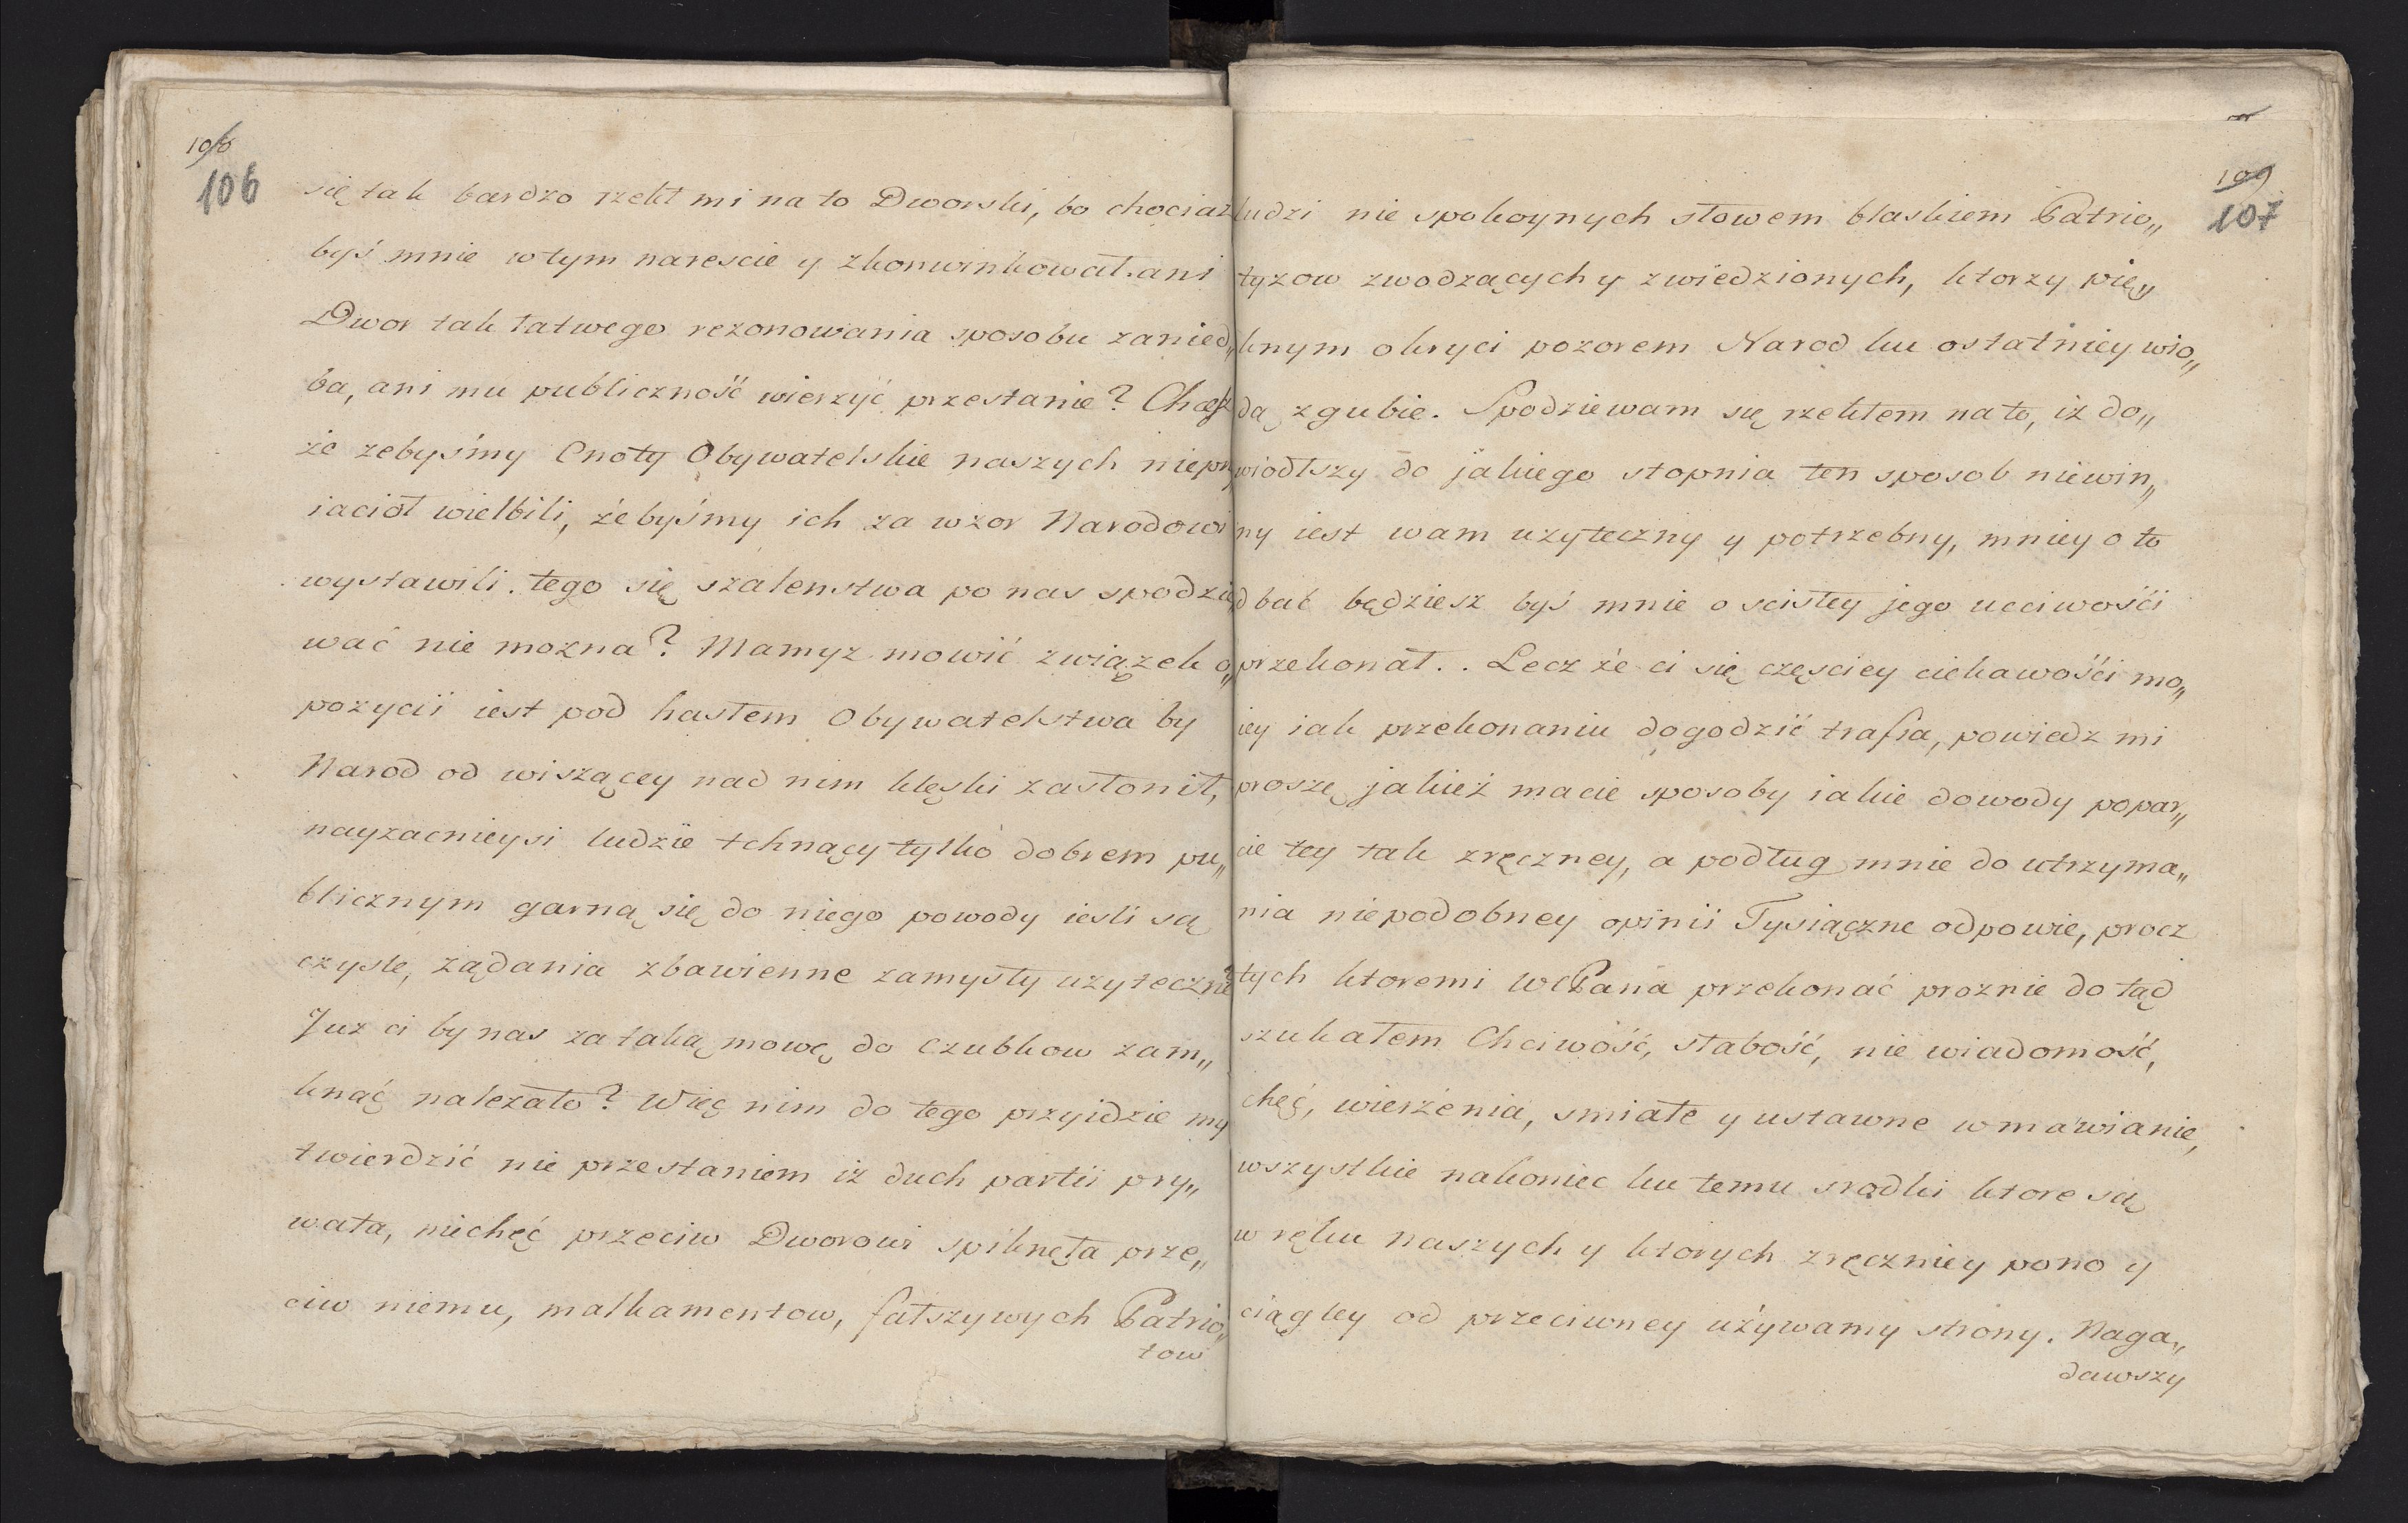 106
106
się tak bardzo rzekł mi na to Dworski, bo chociaz
byś mnie w tym narescie y zkonwinkował. ani
Dwor tak łatwego rezonowania sposobu zanied„
ba, ani mu publiczność wierzyć przestanie? Chcesz
że zebyśmy Cnoty Obywatelskie naszych niepry
iaciół wielbili, żebyśmy ich za wzor Narodowi
wystawili. tego się szalenstwa po nas spodzie
wać nie mozna? Mamyz mowić związek o„
pozycii iest pod hasłem Obywatelstwa by
Narod od wiszącey nad nim klęski zasłonił,
nayzacnieysi ludzie tchnący tylko dobrem pu„
blicznym garną się do niego powody iesli są
czyste, ządania zbawienne zamysły uzyteczne?
Juz ci by nas za taką mowę do czubkow zam„
knąć nalezało? Więc nim do tego przyidzie my
twierdzić nie przestaniem iz duch partii pry„
wata, niechęć przeciw Dworowi spiknęła prze„
ciw niemu, malkamentow, fałszywych Patrio„
tow
109
107
ludzi nie spokoynych słowem blaskiem Patrio„
tyzow zwodzących y zwiedzionych, ktorzy pię„
knym okryci pozorem Narod ku ostatniey wio„
dą zgubie. Spodziewam się rzekłem na to, iz do„
wiodłszy do jakiego stopnia ten sposob niewin„
ny iest wam uzyteczny y potrzebny, mniey o to
dbać będziesz byś mnie o scisłey jego ucciwości
przekonał.. Lecz że ci się częsciey ciekawości mo„
iey iak przekonaniu dogodzić trafia, powiedz mi
proszę jakież macie sposoby iakie dowody popar„
cie tey tak zręczney, a podług mnie do utrzyma„
nia niepodobney opinii Tysiączne odpowie, procz
tych ktoremi WcPana przekonać proznie do tąd
szukałem Chciwość, słabość, nie wiadomość,
chęć, wierzenia, smiałe y ustawne wmawianie,
wszystkie nakoniec ku temu srodki ktore są
w ręku naszych y ktorych zręczniey pono y
ciągley od przeciwney używamy strony. Naga„
dawszy